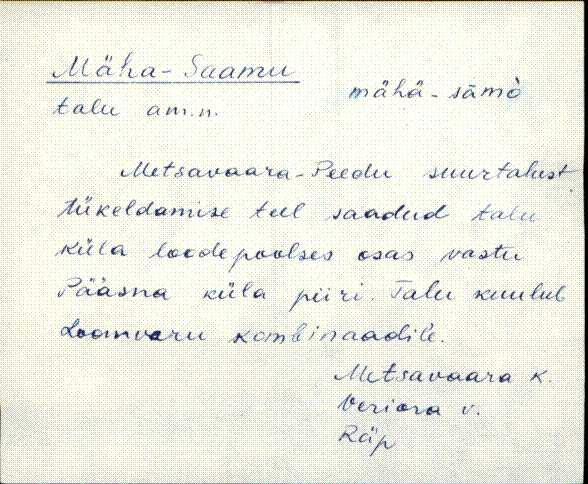 Mäha-Saamu
mähä-sämò
talu am.n.
Metsavaara-Peedu suurtalust
tükeldamise teel saadud talu
küla loodepoolses osas vastu
Pääsna küla piiri. Talu kuulub
Loonvaru kombinaadile.
Metsavaara k.
Veriora v.
Räp